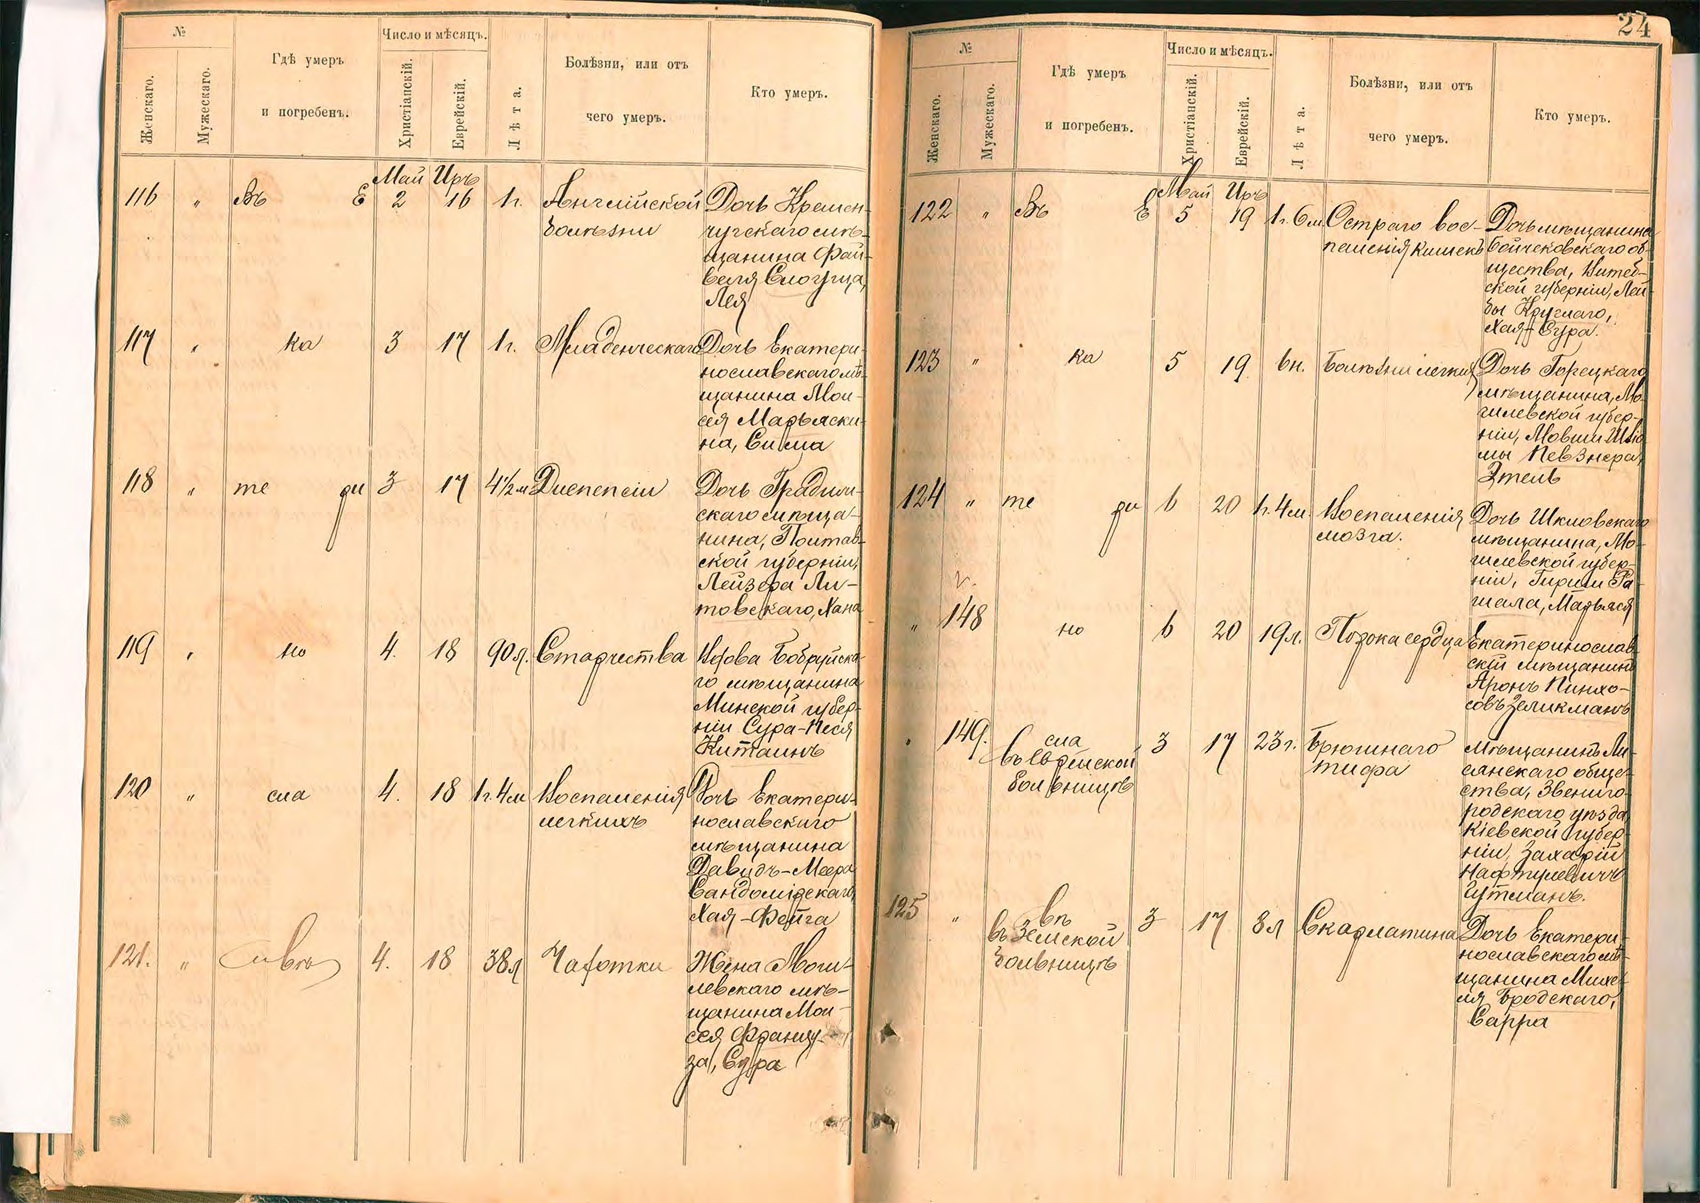 №
Женскаго.
Мужескаго.
Гдѣ умеръ
и погребенъ.
Число и мѣсяцъ.
Христіанскій.
Еврейскій.
Лѣта.
Болѣзни, или отъ
чего умеръ.
Кто умеръ.
Май Иръ
116 " Въ Е 2 16 1 г. Англійской
болѣзни
Дочь Кремен-
чугскаго мѣ-
щанина Фай-
веля Слоуща,
Лея
117 " ка 3 17 1 г. Младенческаго
Дочь Екатери-
нославскаго мѣ-
щанина Мои-
сея Марьяски-
на, Сима
118 " те ри 3 17 4½ м Диспепсіи
Дочь Градиж-
скаго мѣща-
нина, Полтав-
ской губерніи,
Лейзера Ли-
товскаго, Хана
119 " но 4. 18 90 л. Старчества
Вдова Бобруйска-
го мѣщанина
Минской губер-
ніи Сура-Песя
Китаинъ
120 " сла 4. 18 1 г. 4 м Воспаленія
легкихъ
Дочь Екатери-
нославскаго
мѣщанина
Давидъ-Меера
Сандомірскаго,
Хая-Фейга
121. " 4. 18 38 л Чахотки
Жена Моги-
левскаго мѣ-
щанина Мои-
сея Францу-
за, Сура
24
№
Женскаго.
Мужескаго.
Гдѣ умеръ
и погребенъ.
Число и мѣсяцъ.
Христіанскій.
Еврейскій.
Лѣта.
Болѣзни, или отъ
чего умеръ.
Кто умеръ.
Май Иръ
122 " Въ Е 5 19 1 г. 6 м Остраго вос-
паленія кишекъ
Дочь мѣщанина
Бойчековскаго об-
щества, Витеб-
ской губерніи, Лей-
бы Круглаго,
Хая-Сура.
123 " ка 5 19 6 н. Болѣзни легкихъ
Дочь Горецкаго
мѣщанина, Мо-
гилевской губер-
ніи, Мовши Шлио-
мы Певзнера,
Этель
124 " те ри 6 20 1 г. 4 м. Воспаленія
мозга.
Дочь Шкловскаго
мѣщанина, Мо-
гилевской губер-
ніи, Гирши Ра-
шала, Марьяся
" 148 но 6 20 19 л. Порока сердца
Екатеринослав-
скій мѣщанинъ
Аронъ Пинхо-
совъ Зеликманъ
" 149. сла
Въ Еврейской
больницѣ
3 17 23 г. Брюшнаго
тифа
мѣщанинъ Ли-
сянскаго обще-
ства, Звениго-
родскаго уѣзда,
Кіевской губер-
ніи, Захарій
Нафтулевичъ
Гутманъ.
125 " въ
въ Земской
больницѣ
3 17 8 л Скарлатина
Дочь Екатери-
нославскаго мѣ-
щанина Михе-
ля Бродскаго,
Сарра